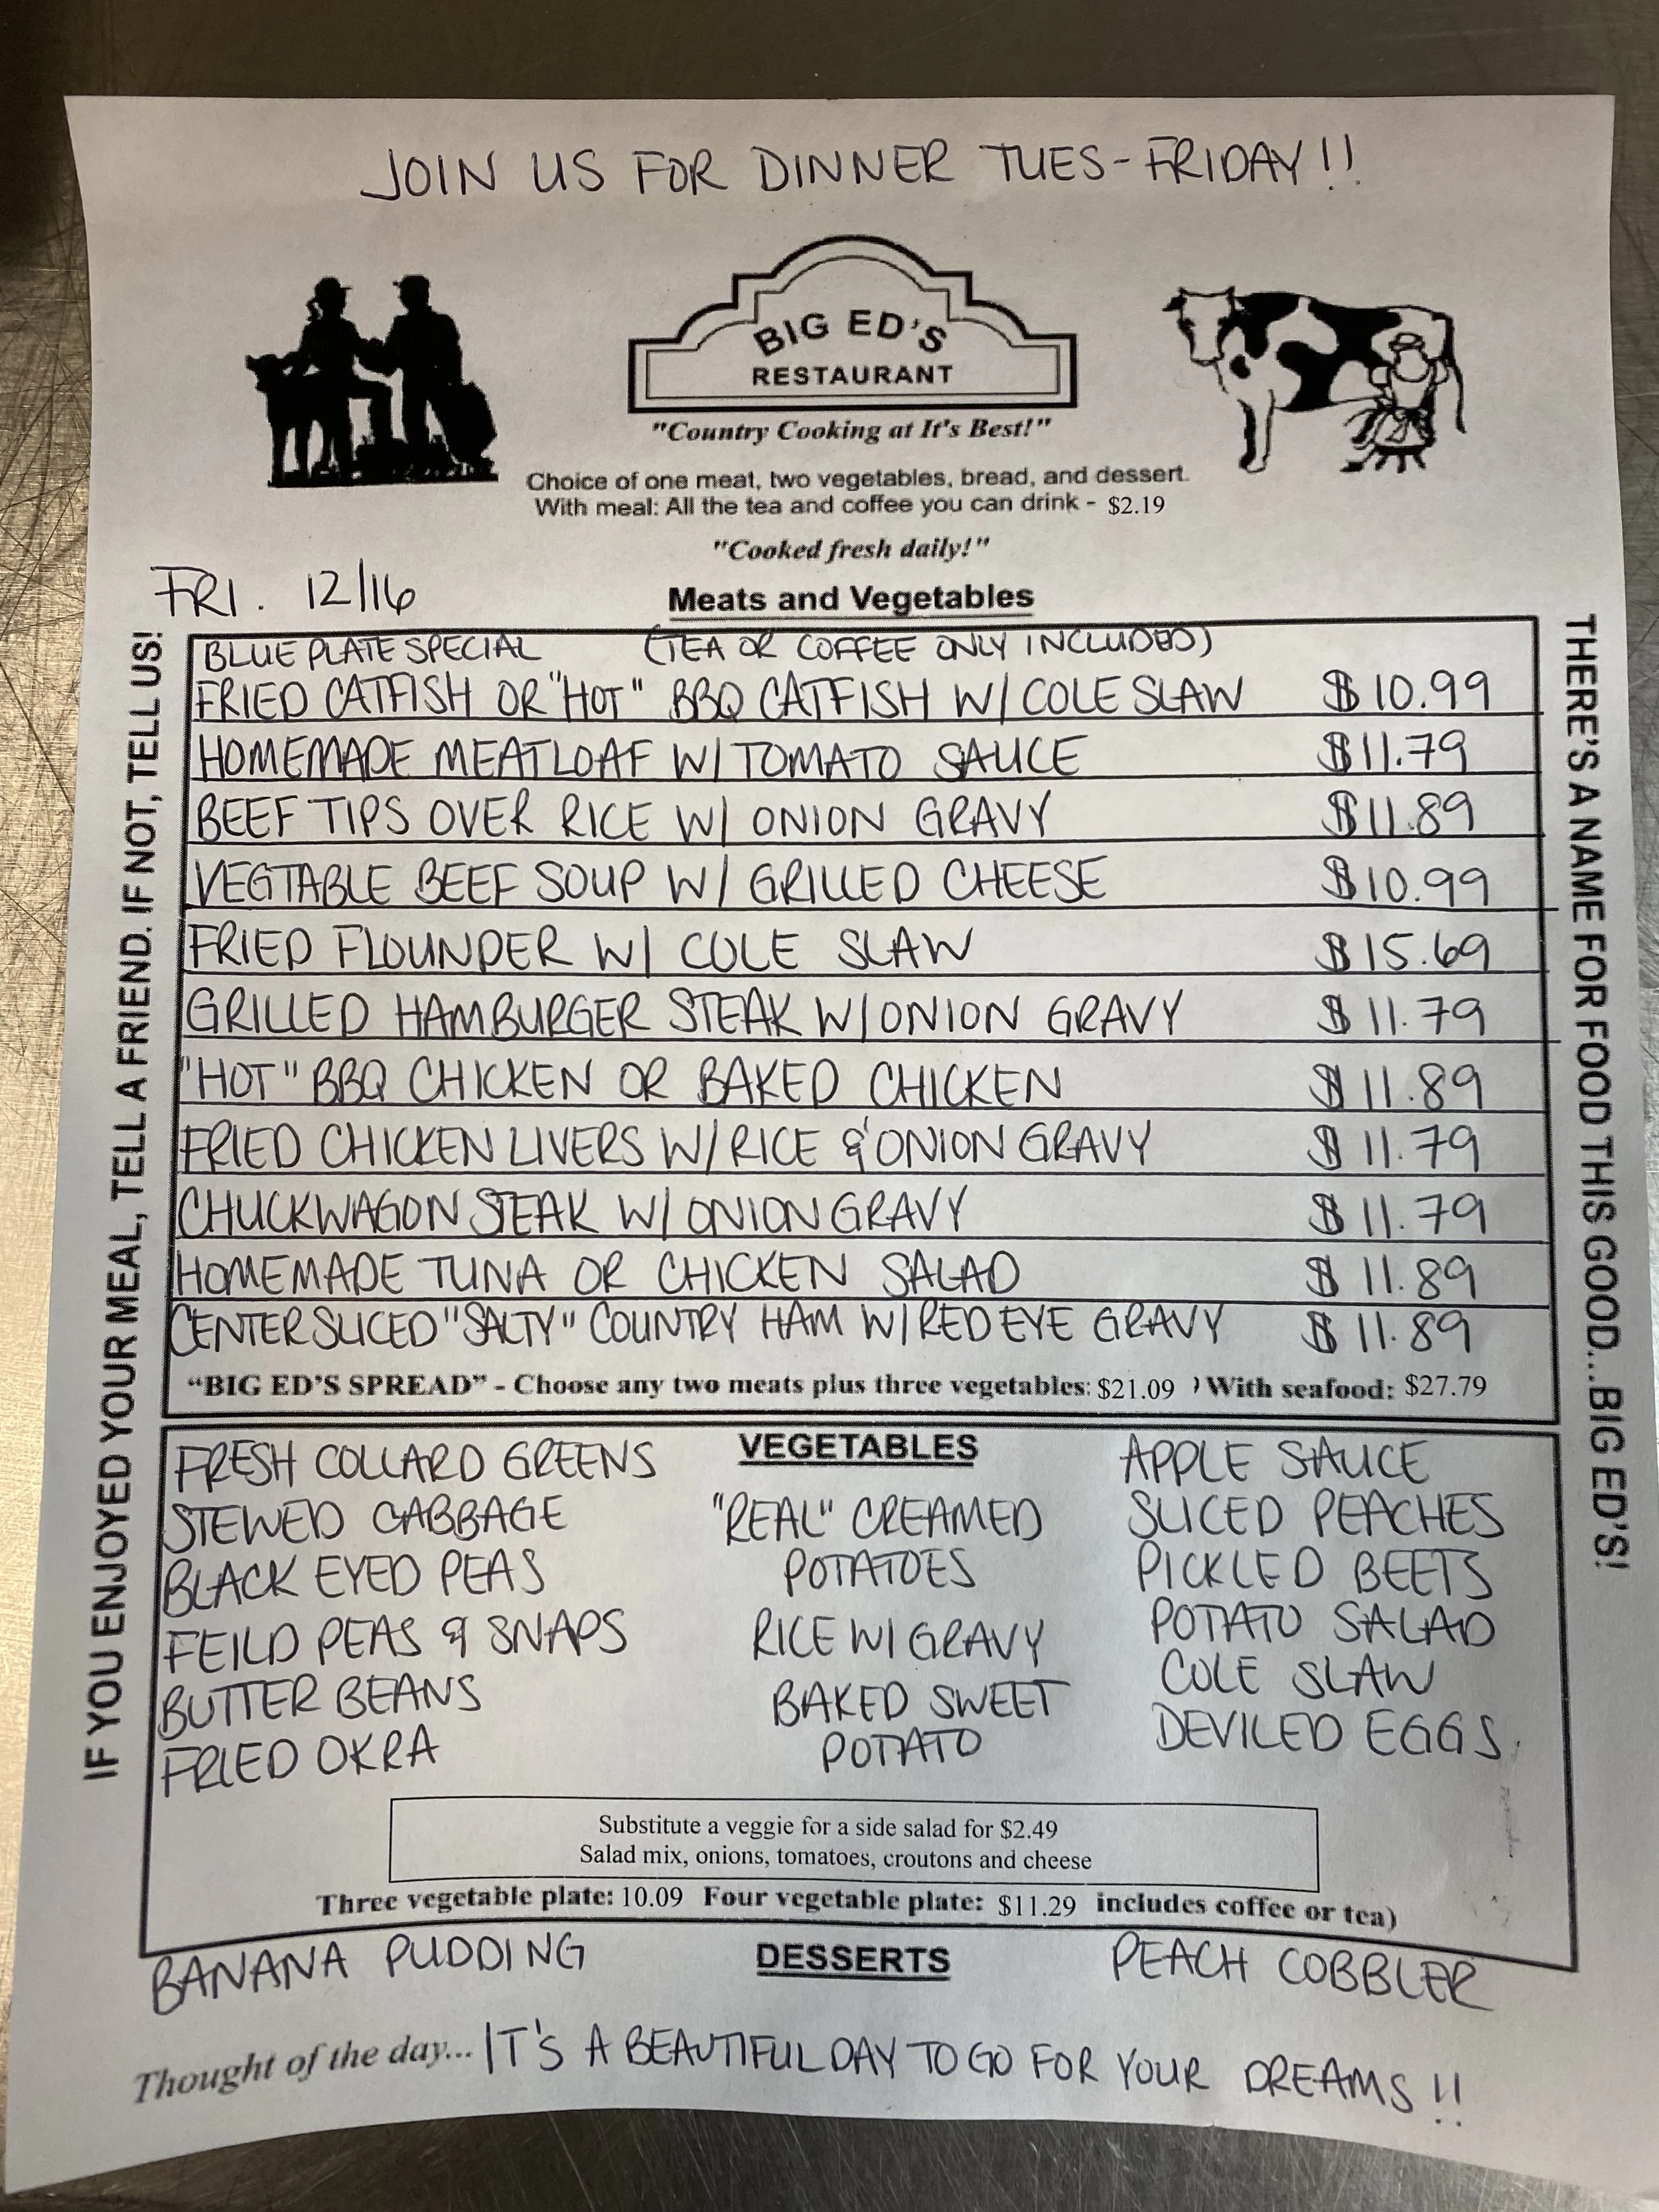 JOIN US FOR DINNER TUES-FRIDAY!!
BIG ED'S
RESTAURANT
"Country Cooking at It's Best!"
Choice of one meat, two vegetables, bread, and dessert.
With meal: All the tea and coffee you can drink - $2.19
"Cooked fresh daily!"
FRI. 12/16
Meats and Vegetables
IF YOU ENJOYED YOUR MEAL, TELL A FRIEND. IF NOT, TELL US!
BLUE PLATE SPECIAL (TEA OR COFFEE ONLY INCLUDED)
FRIED CATFISH OR "HOT" BBQ CATFISH W/ COLE SLAW $10.99
HOMEMADE MEATLOAF W/ TOMATO SAUCE $11.79
BEEF TIPS OVER RICE W/ ONION GRAVY $11.89
VEGTABLE BEEF SOUP W/ GRILLED CHEESE $10.99
FRIED FLOUNDER W/ COLE SLAW $15.69
GRILLED HAMBURGER STEAK W/ ONION GRAVY $11.79
"HOT" BBQ CHICKEN OR BAKED CHICKEN $11.89
FRIED CHICKEN LIVERS W/ RICE & ONION GRAVY $11.79
CHUCKWAGON STEAK W/ ONION GRAVY $11.79
HOMEMADE TUNA OR CHICKEN SALAD $11.89
CENTER SLICED "SALTY" COUNTRY HAM W/ RED EYE GRAVY $11.89
"BIG ED'S SPREAD" - Choose any two meats plus three vegetables: $21.09 ) With seafood: $27.79
THERE'S A NAME FOR FOOD THIS GOOD...BIG ED'S!
VEGETABLES
FRESH COLLARD GREENS
STEWED CABBAGE
BLACK EYED PEAS
FEILD PEAS & SNAPS
BUTTER BEANS
FRIED OKRA
"REAL" CREAMED
POTATOES
RICE W/ GRAVY
BAKED SWEET
POTATO
APPLE SAUCE
SLICED PEACHES
PICKLED BEETS
POTATO SALAD
COLE SLAW
DEVILED EGGS
Substitute a veggie for a side salad for $2.49
Salad mix, onions, tomatoes, croutons and cheese
Three vegetable plate: 10.09 Four vegetable plate: $11.29 includes coffee or tea)
DESSERTS
BANANA PUDDING
PEACH COBBLER
Thought of the day... IT'S A BEAUTIFUL DAY TO GO FOR YOUR DREAMS!!